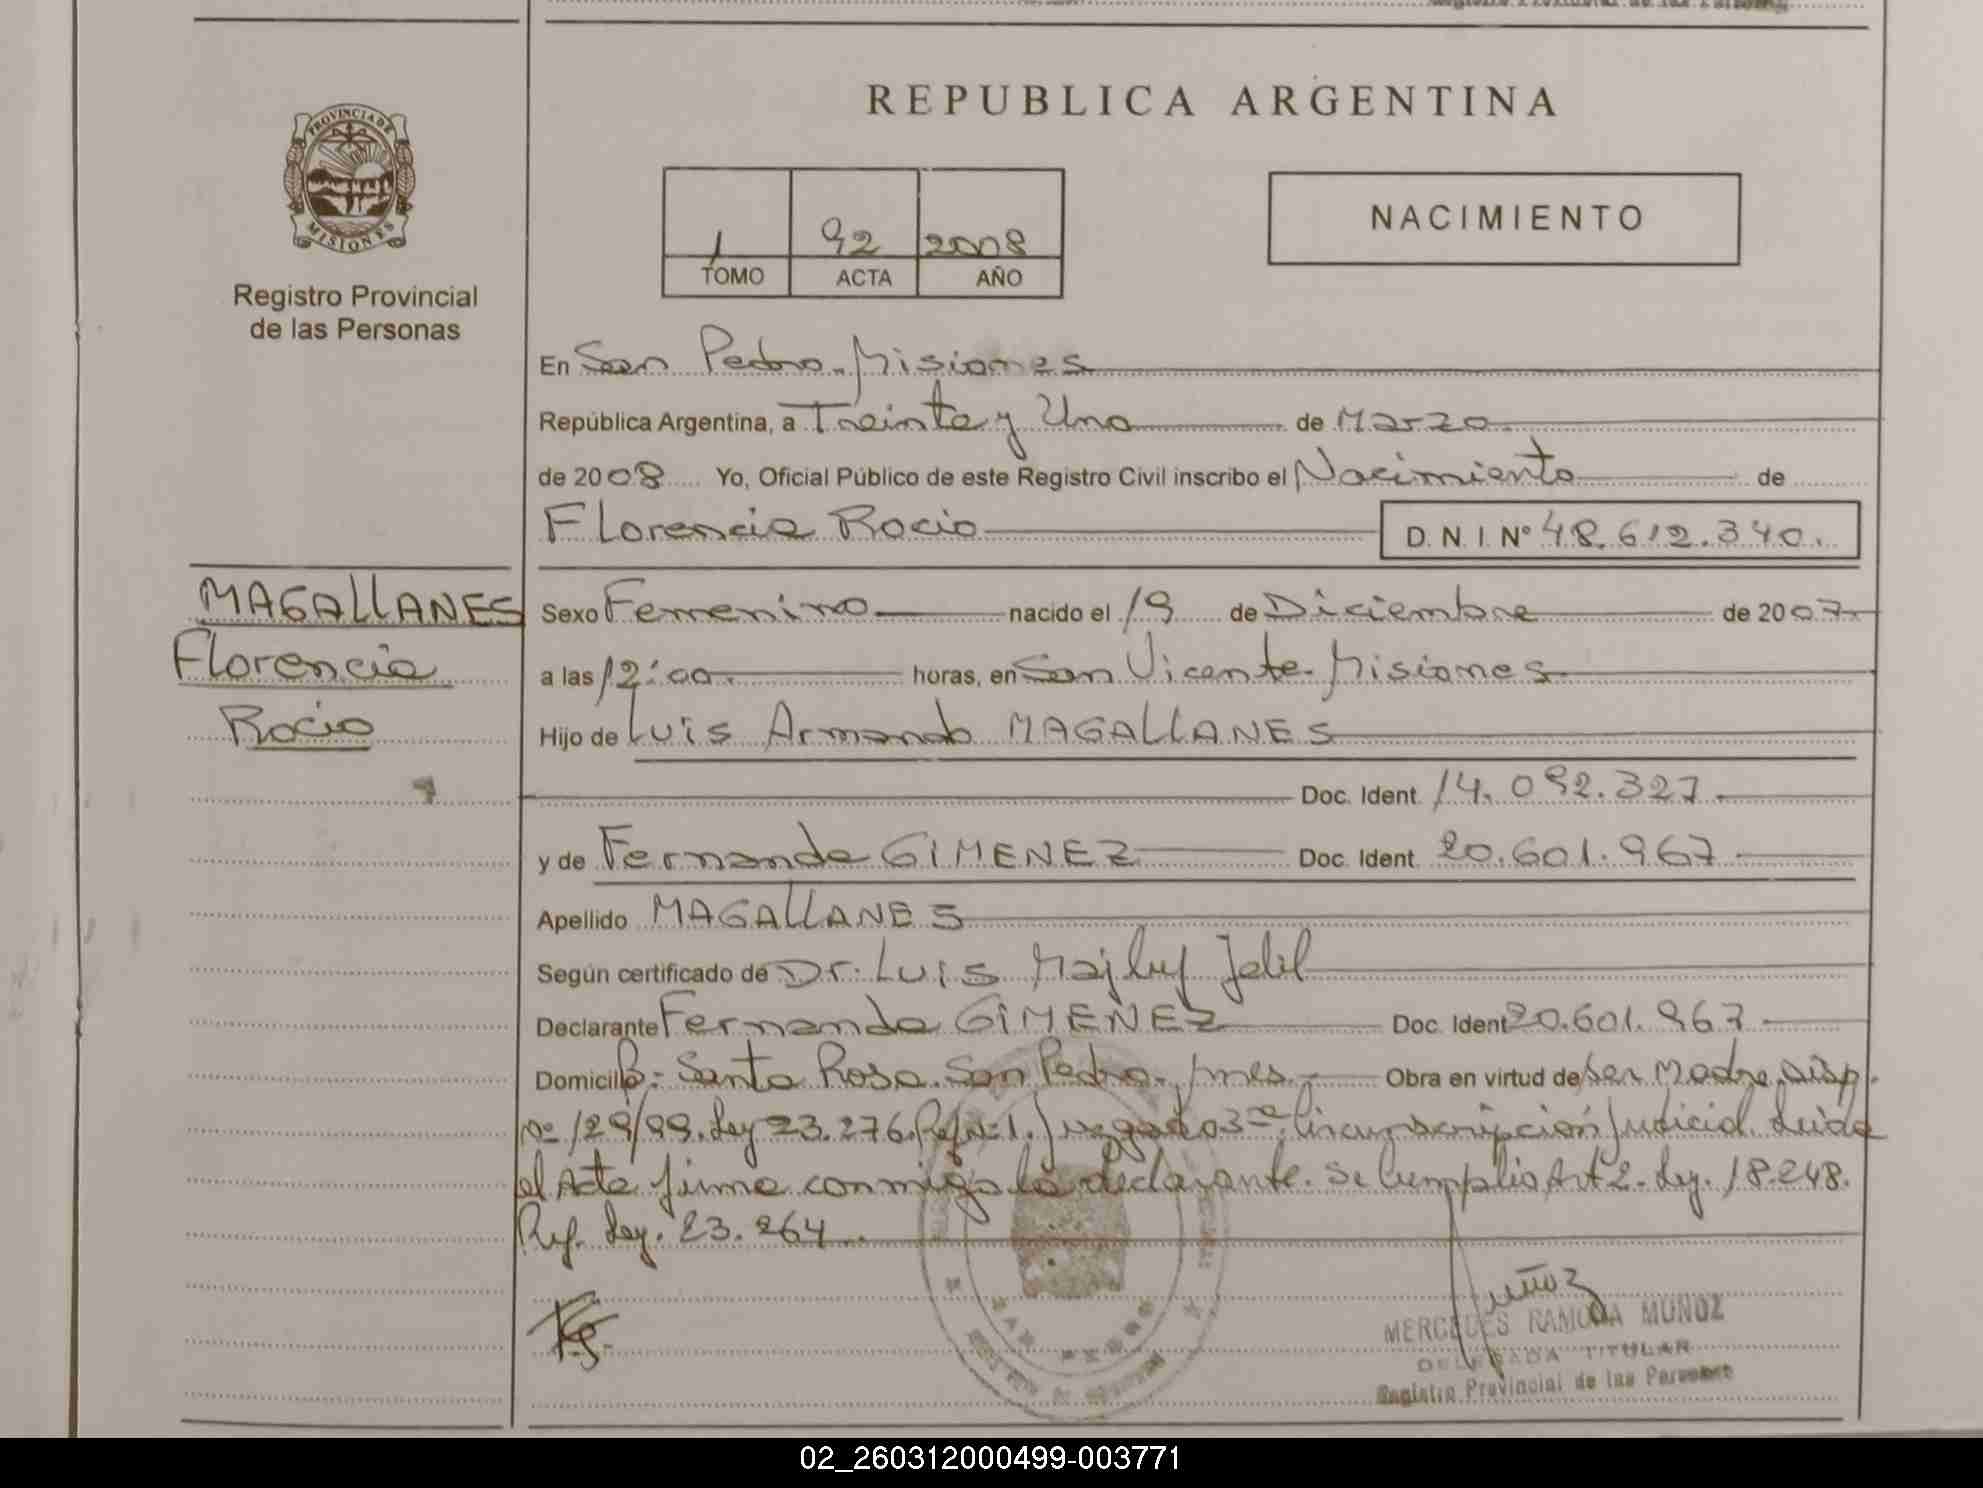 REPUBLICA ARGENTINA
PROVINCIA DE
MISIONES
Registro Provincial
de las Personas
1 92 2008
TOMO ACTA AÑO
NACIMIENTO
En San Pedro. Misiones
República Argentina, a Treinta y Uno de Marzo
de 2008 Yo, Oficial Público de este Registro Civil inscribo el Nacimiento de
Florencia Rocio D. N. I. Nº 48.612.340.
MAGALLANES
Florencia
Rocio
Sexo Femenino nacido el 19 de Diciembre de 2007
a las 12:00. horas, en San Vicente. Misiones
Hijo de Luis Armando MAGALLANES
Doc. Ident. 14.092.327.
y de Fernanda GIMENEZ Doc. Ident. 20.601.967.
Apellido MAGALLANES
Según certificado de Dr. Luis Jalil
Declarante Fernanda GIMENEZ Doc. Ident 20.601.967
Domicilio Bº: Santa Rosa. San Pedro. Mnes. Obra en virtud de Ser Madre. Disp.
Nº 129/99. Ley 23.276. Juzgado 3ra. Circunscripción Judicial. Leida
el Acta firma conmigo la declarante. Se Cumplio Art 2. Ley. 18.248.
Ref. Ley. 23.264.
Muñoz
MERCEDES RAMONA MUÑOZ
DELEGADA TITULAR
Registro Provincial de las Personas
SAN PEDRO
02_260312000499-003771